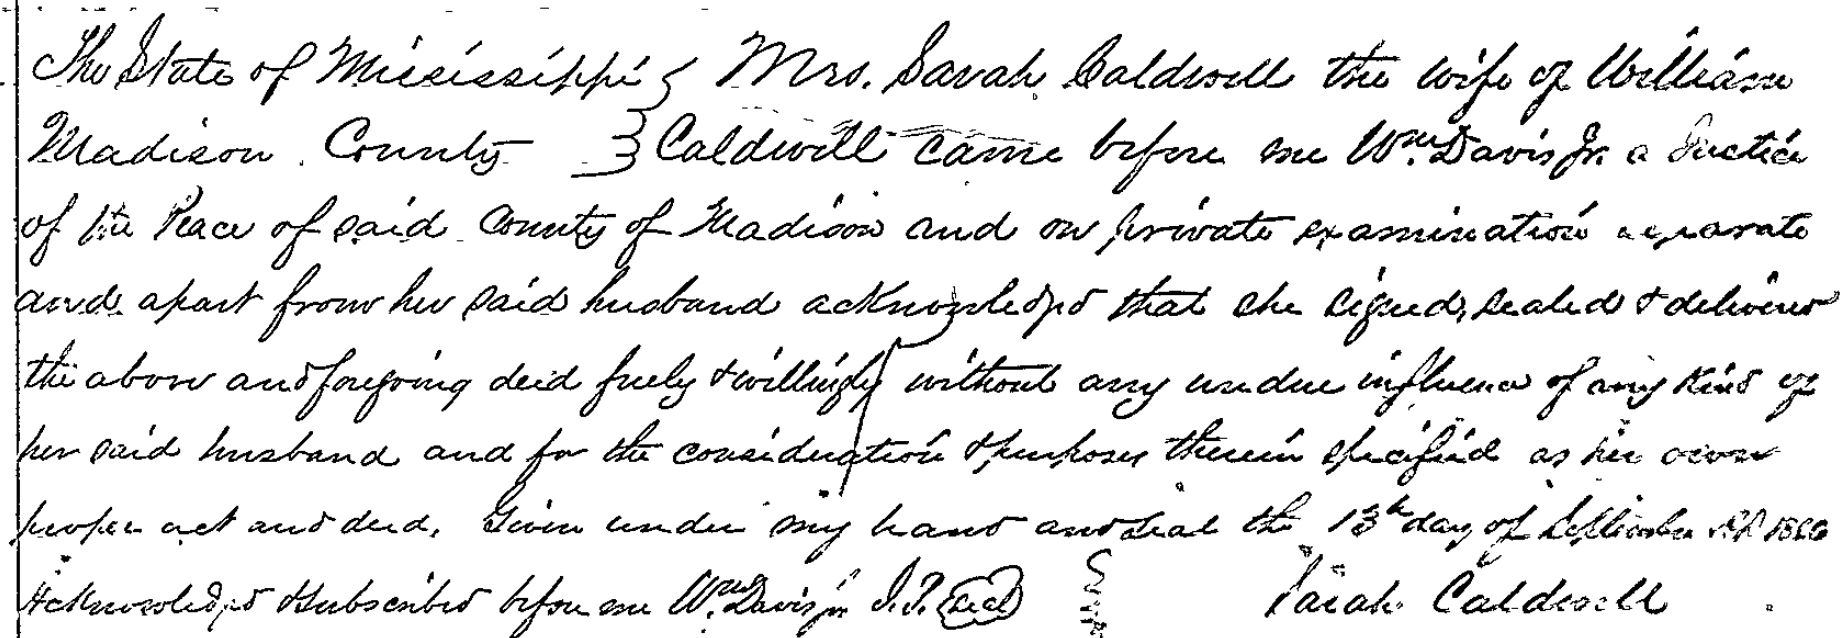 The State of Mississippi } Mrs. Sarah Caldwell the wife of William
Madison County } Caldwell came before me Wm. Davis Jr. a Justice
of the Peace of said County of Madison and on private examination separate
and apart from her said husband acknowledged that she signed, sealed & delivered
the above and foregoing deed freely & willingly without any undue influence of any kind of
her said husband and for the consideration & purposes therein specified as her own
proper act and deed. Given under my hand and seal the 13th day of September AD
Acknowledged & subscribed before me Wm. Davis Jr. J.P. Seal } Sarah Caldwell